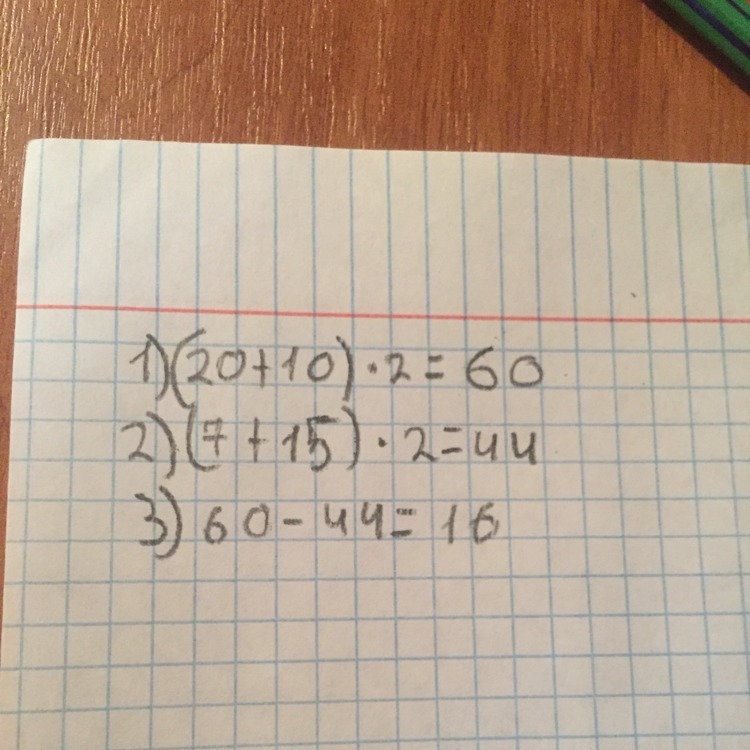 1) (20+10)·2=60
2) (7+15)·2=44
3) 60-44=16